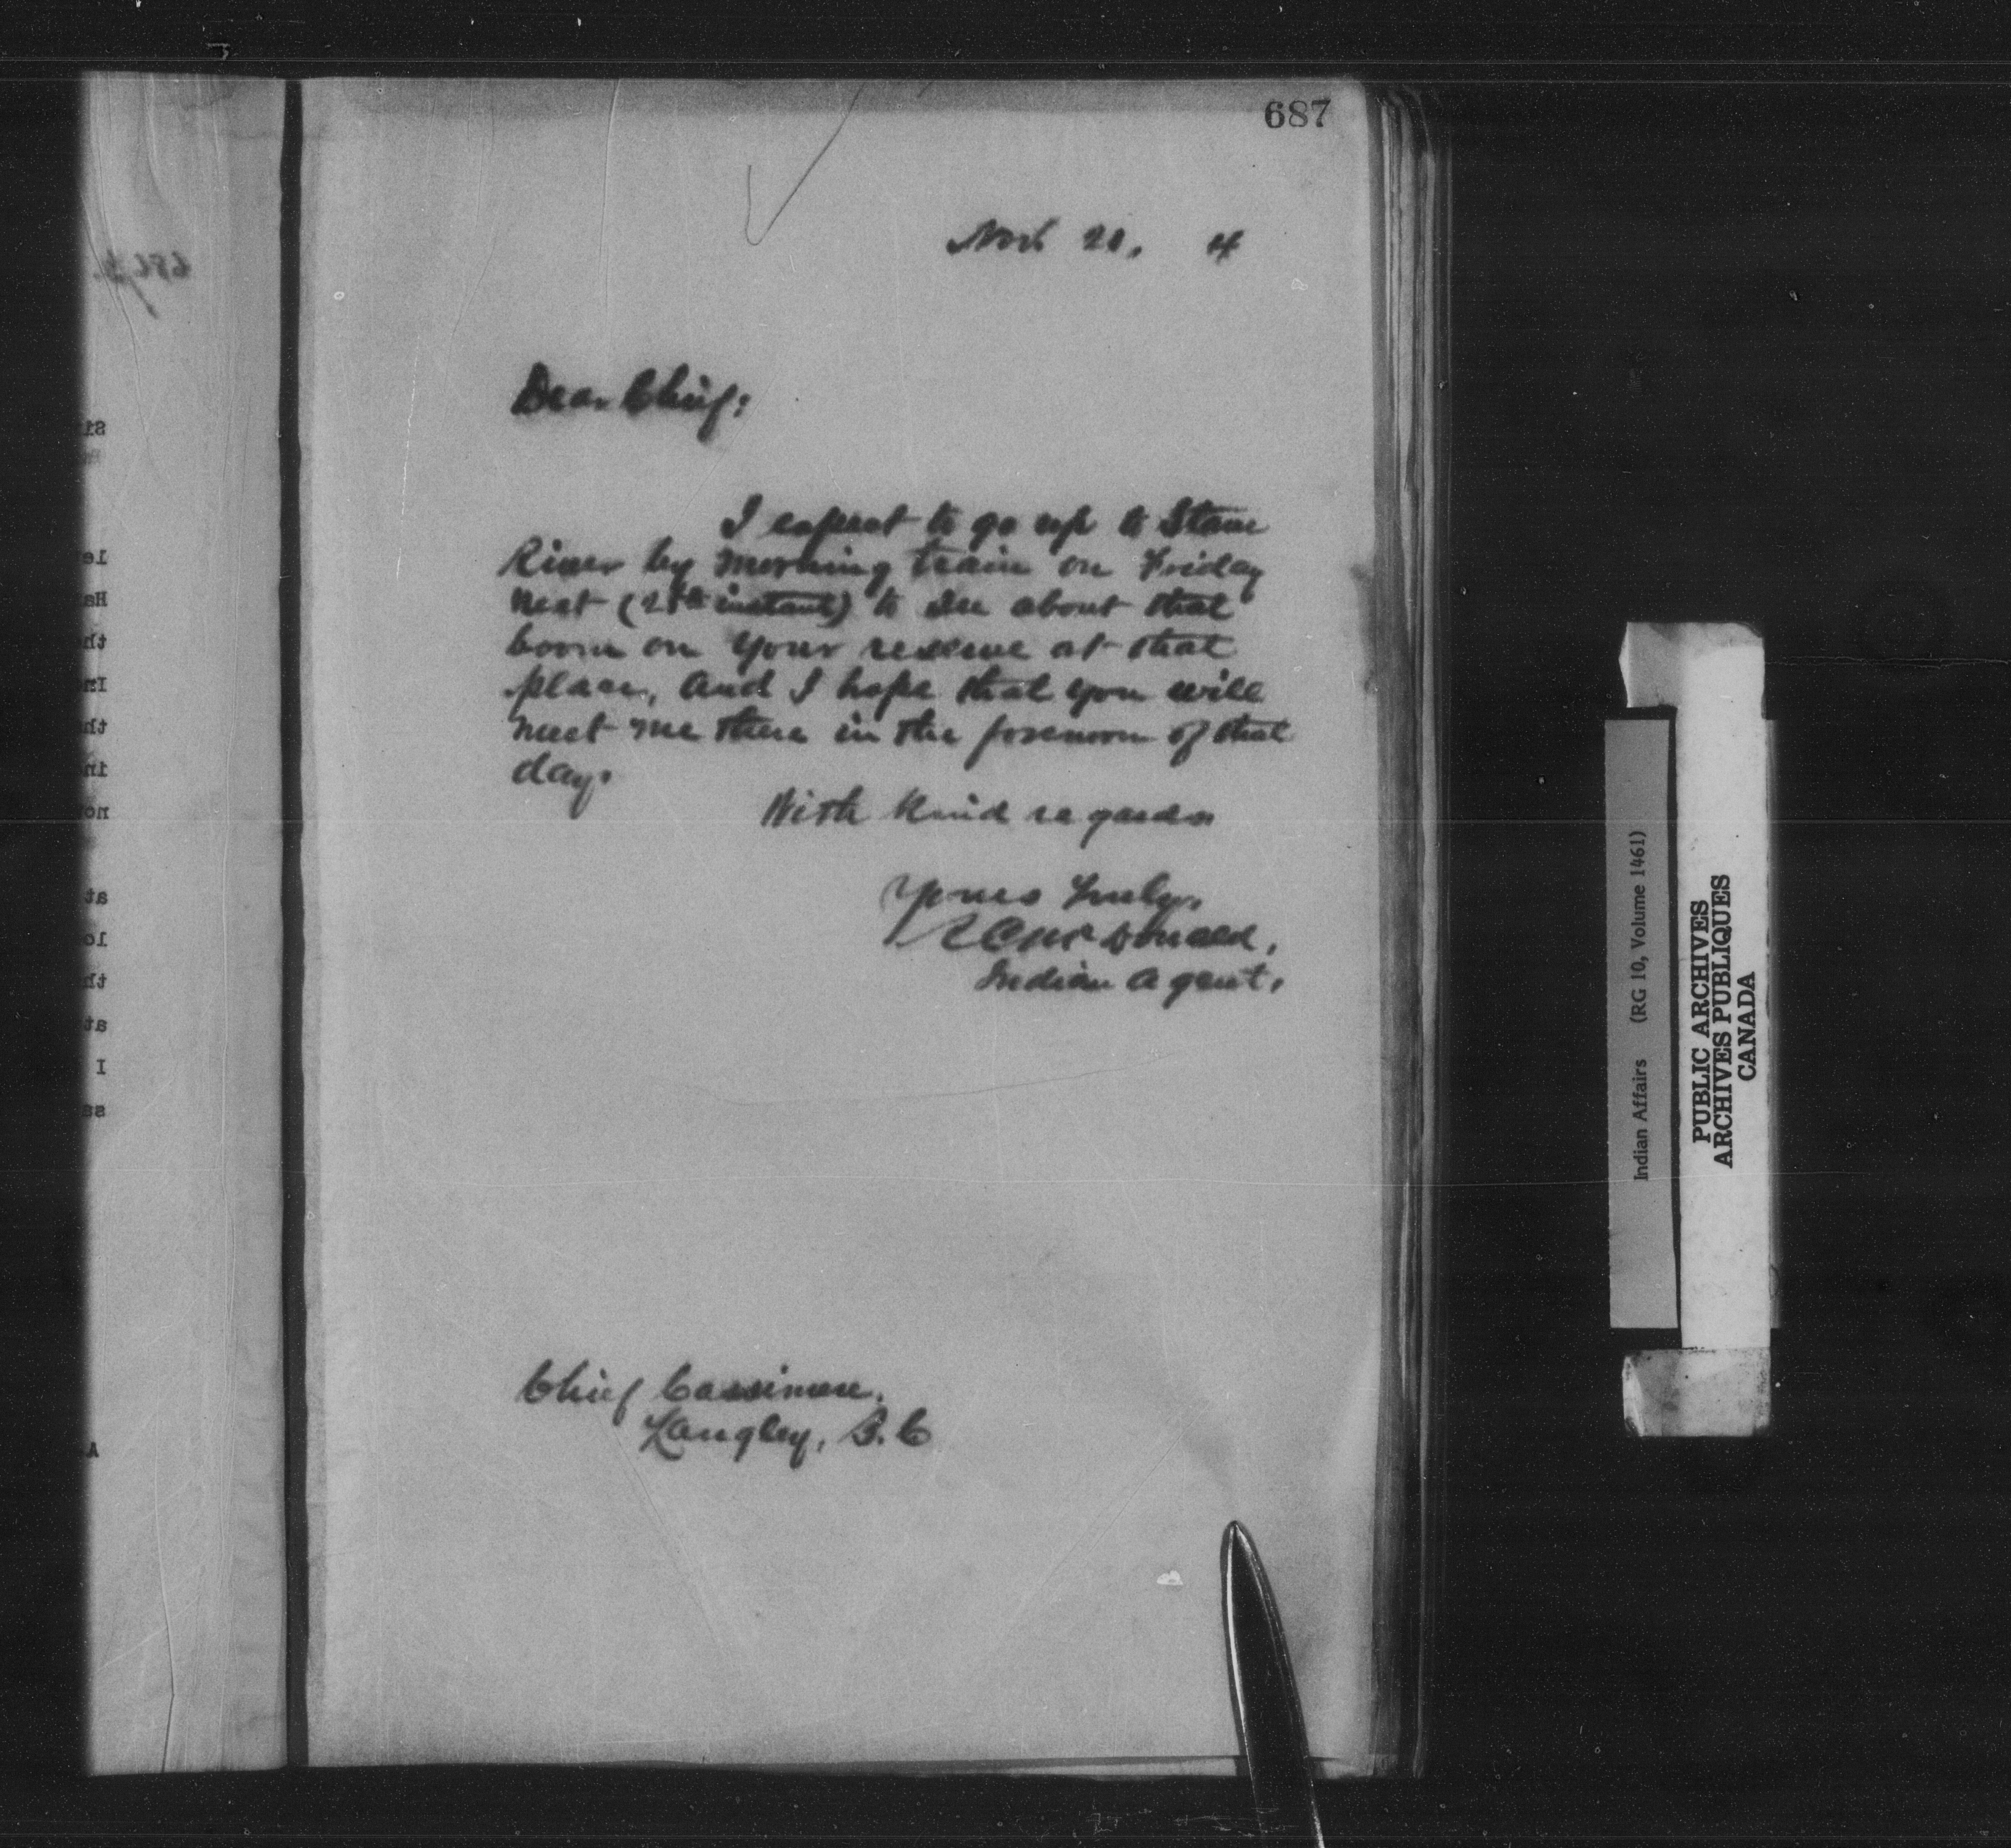 687
Novb 21, 4
Dear Chief:
I expect to go up to Stave
River by morning train on Friday
next (25th instant) to see about that
boom on your reserve at that
place, and I hope that you will
meet me there in the forenoon of that
day.
With kind regards
Yours truly,
R C McDonald,
Indian Agent.
Chief Cassimere,
Langley, B.C
Indian Affairs (RG 10, Volume 1461)
PUBLIC ARCHIVES
ARCHIVES PUBLIQUES
CANADA